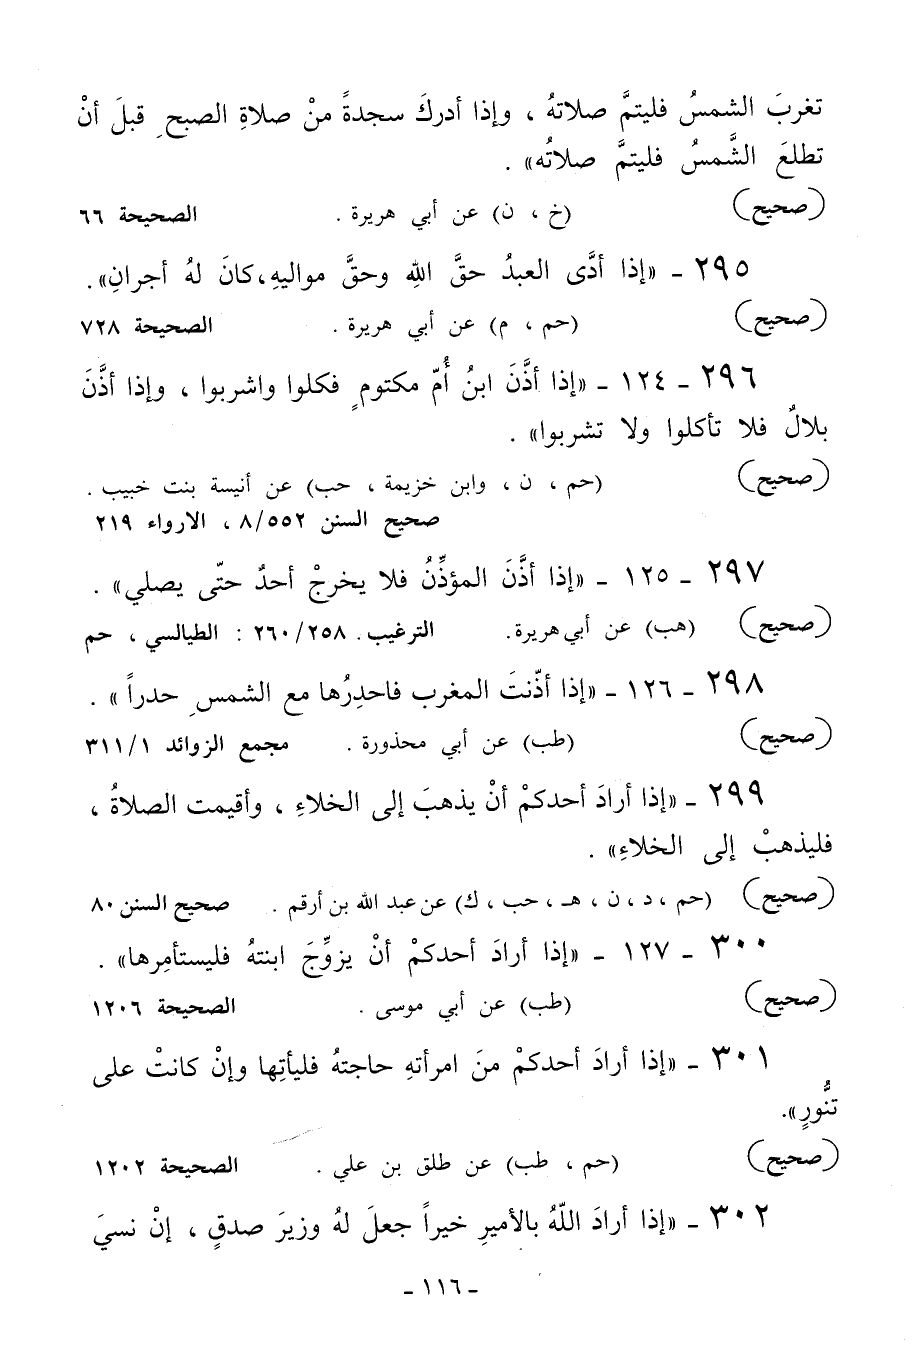 تغربَ الشمسُ فليتمَّ صلاتهُ ، وإذا أدركَ سجدةً منْ صلاةِ الصبحِ قبلَ أنْ
تطلعَ الشَّمسُ فليتمَّ صلاتُه» .
(صحيح) (خ ، ن) عن أبي هريرة . الصحيحة ٦٦
٢٩٥ ـ «إذا أدَّى العبدُ حقَّ اللهِ وحقَّ مواليهِ،كانَ لهُ أجرانِ».
(صحيح) (حم ، م) عن أبي هريرة . الصحيحة ٧٢٨
٢٩٦ ـ ١٢٤ ـ «إذا أذَّنَ ابنُ أُمّ مكتومٍ فكلوا واشربوا ، وإذا أذَّنَ
بلالٌ فلا تأكلوا ولا تشربوا» .
(صحيح) (حم ، ن ، وابن خزيمة ، حب) عن أنيسة بنت خبيب .
صحيح السنن ٨/٥٥٢ ، الارواء ٢١٩
٢٩٧ ـ ١٢٥ ـ «إذا أذَّنَ المؤذِّنُ فلا يخرجْ أحدٌ حتّى يصلي» .
(صحيح) (هب) عن أبي هريرة. الترغيب. ٢٦٠/٢٥٨ : الطيالسي ، حم
٢٩٨ ـ ١٢٦ ـ «إذا أذّنتَ المغرب فاحدِرُها مع الشمسِ حدراً » .
(صحيح) (طب) عن أبي محذورة . مجمع الزوائد ٣١١/١
٢٩٩ ـ «إذا أرادَ أحدكمْ أنْ يذهبَ إلى الخلاءِ ، وأقيمت الصلاةُ ،
فليذهبْ إلى الخلاءِ» .
(صحيح) (حم ، د ، ن ، هـ ، حب ، ك) عن عبد الله بن أرقم . صحيح السنن ٨٠
٣٠٠ ـ ١٢٧ ـ «إذا أرادَ أحدكمْ أنْ يزوِّجَ ابنتهُ فليستأمِرها» .
(صحيح) (طب) عن أبي موسى . الصحيحة ١٢٠٦
٣٠١ ـ «إذا أرادَ أحدكمْ منَ امرأتهِ حاجتهُ فليأتِها وإنْ كانتْ على
تنُّورٍ».
(صحيح) (حم ، طب) عن طلق بن علي . الصحيحة ١٢٠٢
٣٠٢ ـ «إذا أرادَ اللّهُ بالأميرِ خيراً جعلَ لهُ وزيرَ صدقٍ ، إنْ نسيَ
ـ ١١٦ ـ